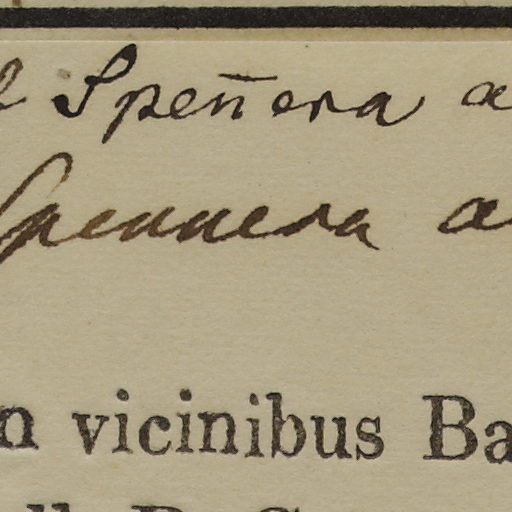 Spen̄era a
Spennera a
n vicinibus Ba